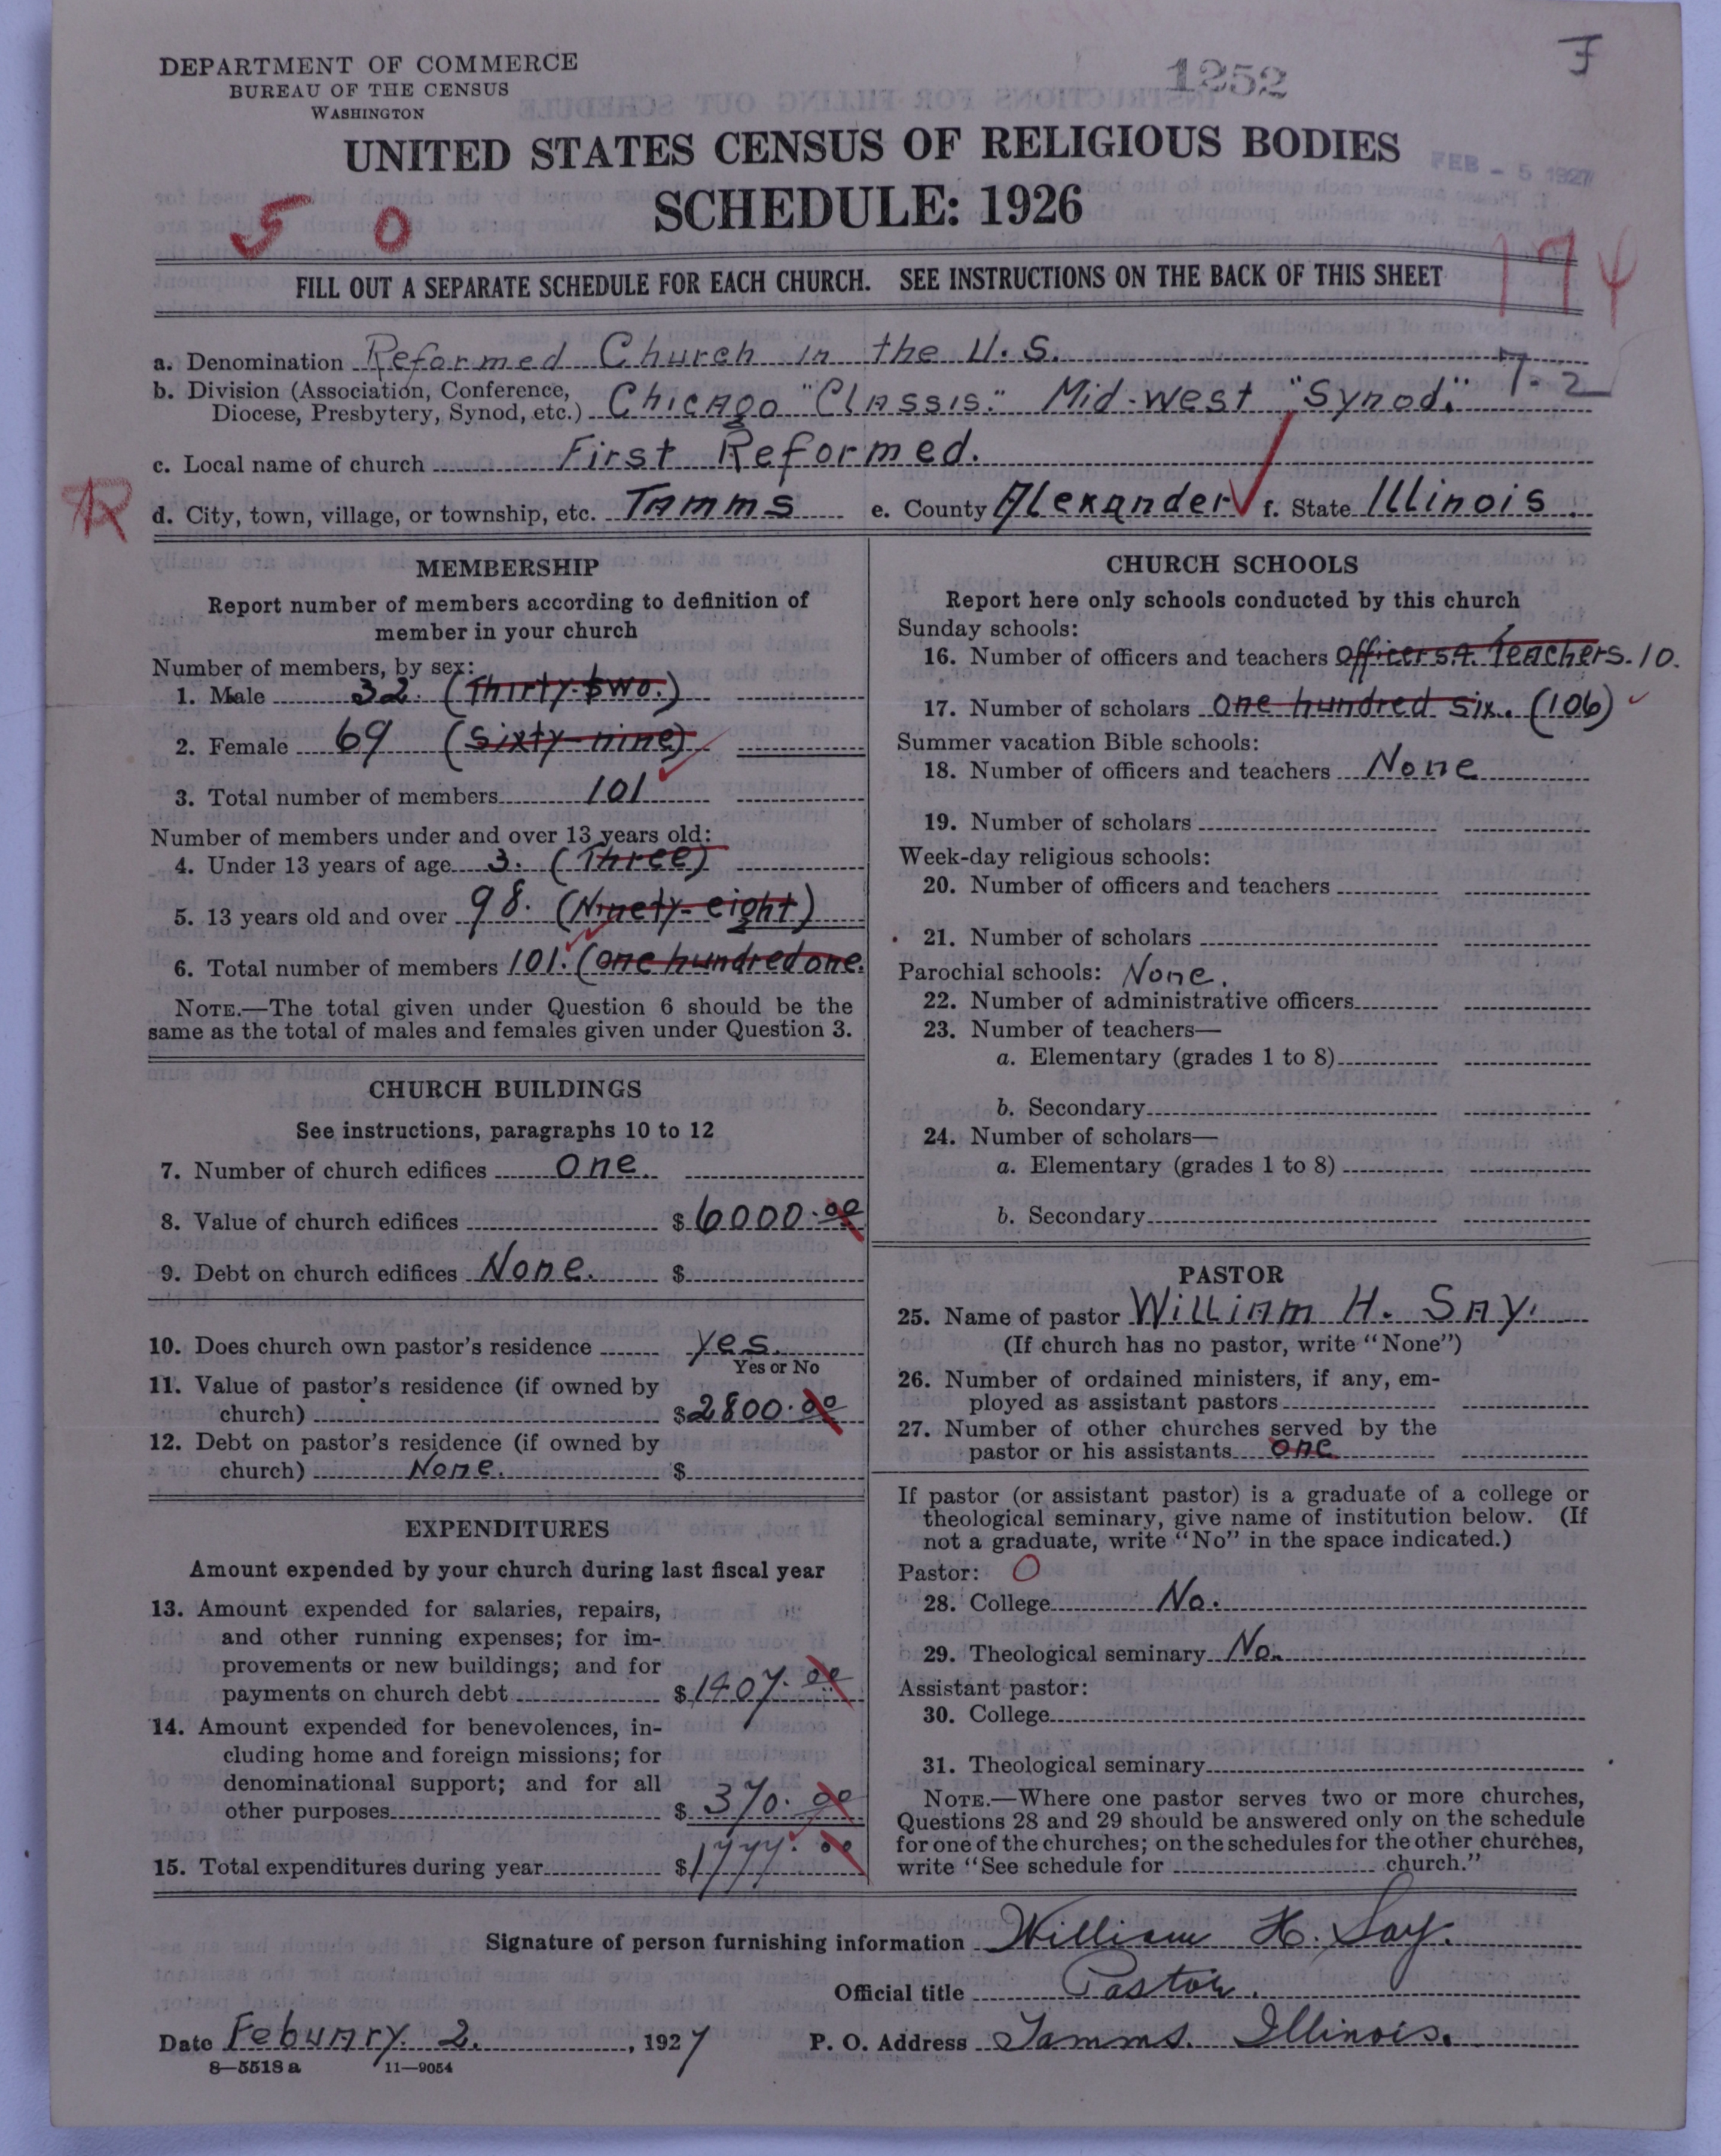 DEPARTMENT OF COMMERCE
BUREAU OF THE CENSUS
WASHINGTON
1252
UNITED STATES CENSUS OF RELIGIOUS BODIES
FEB - 5 1927
SCHEDULE: 1926
5 0
174
FILL OUT A SEPARATE SCHEDULE FOR EACH CHURCH. SEE INSTRUCTIONS ON THE BACK OF THIS SHEET
a. Denomination Reformed Church in the U.S.
7-2
b. Division (Association, Conference,
Diocese, Presbytery, Synod, etc.) Chicago "Classis." Mid-west "Synod."
c. Local name of church First Reformed.
d. City, town, village, or township, etc. Tamms e. County Alexander f. State Illinois.
MEMBERSHIP
Report number of members according to definition of
member in your church
Number of members, by sex:
1. Male 32. (Thirty-two.)
2. Female 69 (Sixty-nine)
3. Total number of members 101
Number of members under and over 13 years old:
4. Under 13 years of age 3. (Three)
5. 13 years old and over 98. (Ninety-eight)
6. Total number of members 101. (one hundred one.
NOTE.—The total given under Question 6 should be the
same as the total of males and females given under Question 3.
CHURCH BUILDINGS
See instructions, paragraphs 10 to 12
7. Number of church edifices one.
8. Value of church edifices $ 6000.00
9. Debt on church edifices None. $
10. Does church own pastor's residence yes.
Yes or No
11. Value of pastor's residence (if owned by
church) $2800.00
12. Debt on pastor's residence (if owned by
church) None. $
EXPENDITURES
Amount expended by your church during last fiscal year
13. Amount expended for salaries, repairs,
and other running expenses; for im-
provements or new buildings; and for
payments on church debt $ 1407.00
14. Amount expended for benevolences, in-
cluding home and foreign missions; for
denominational support; and for all
other purposes $ 370.00
15. Total expenditures during year $ 1777.00
CHURCH SCHOOLS
Report here only schools conducted by this church
Sunday schools:
16. Number of officers and teachers Teachers. 10.
17. Number of scholars one hundred six. (106)
Summer vacation Bible schools:
18. Number of officers and teachers None
19. Number of scholars
Week-day religious schools:
20. Number of officers and teachers
21. Number of scholars
Parochial schools: None.
22. Number of administrative officers
23. Number of teachers—
a. Elementary (grades 1 to 8)
b. Secondary
24. Number of scholars—
a. Elementary (grades 1 to 8)
b. Secondary
PASTOR
25. Name of pastor William H. Say.
(If church has no pastor, write "None")
26. Number of ordained ministers, if any, em-
ployed as assistant pastors
27. Number of other churches served by the
pastor or his assistants one
If pastor (or assistant pastor) is a graduate of a college or
theological seminary, give name of institution below. (If
not a graduate, write "No" in the space indicated.)
Pastor: O
28. College No.
29. Theological seminary No.
Assistant pastor:
30. College
31. Theological seminary
NOTE.—Where one pastor serves two or more churches,
Questions 28 and 29 should be answered only on the schedule
for one of the churches; on the schedules for the other churches,
write "See schedule for church."
Signature of person furnishing information William H. Say.
Official title Pastor.
Date Febuary. 2. , 1927 P. O. Address Tamms. Illinois.
8—5518 a 11—9054